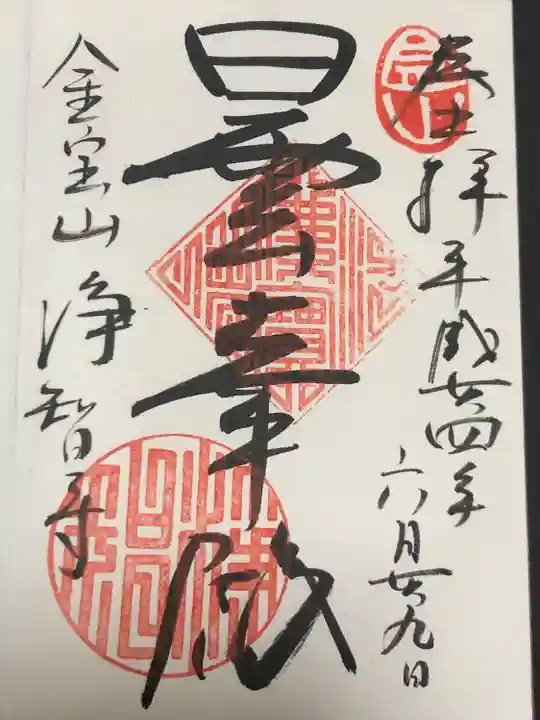 拝 平成廿四年
六月廿九日
曇華殿
金宝山 浄智寺